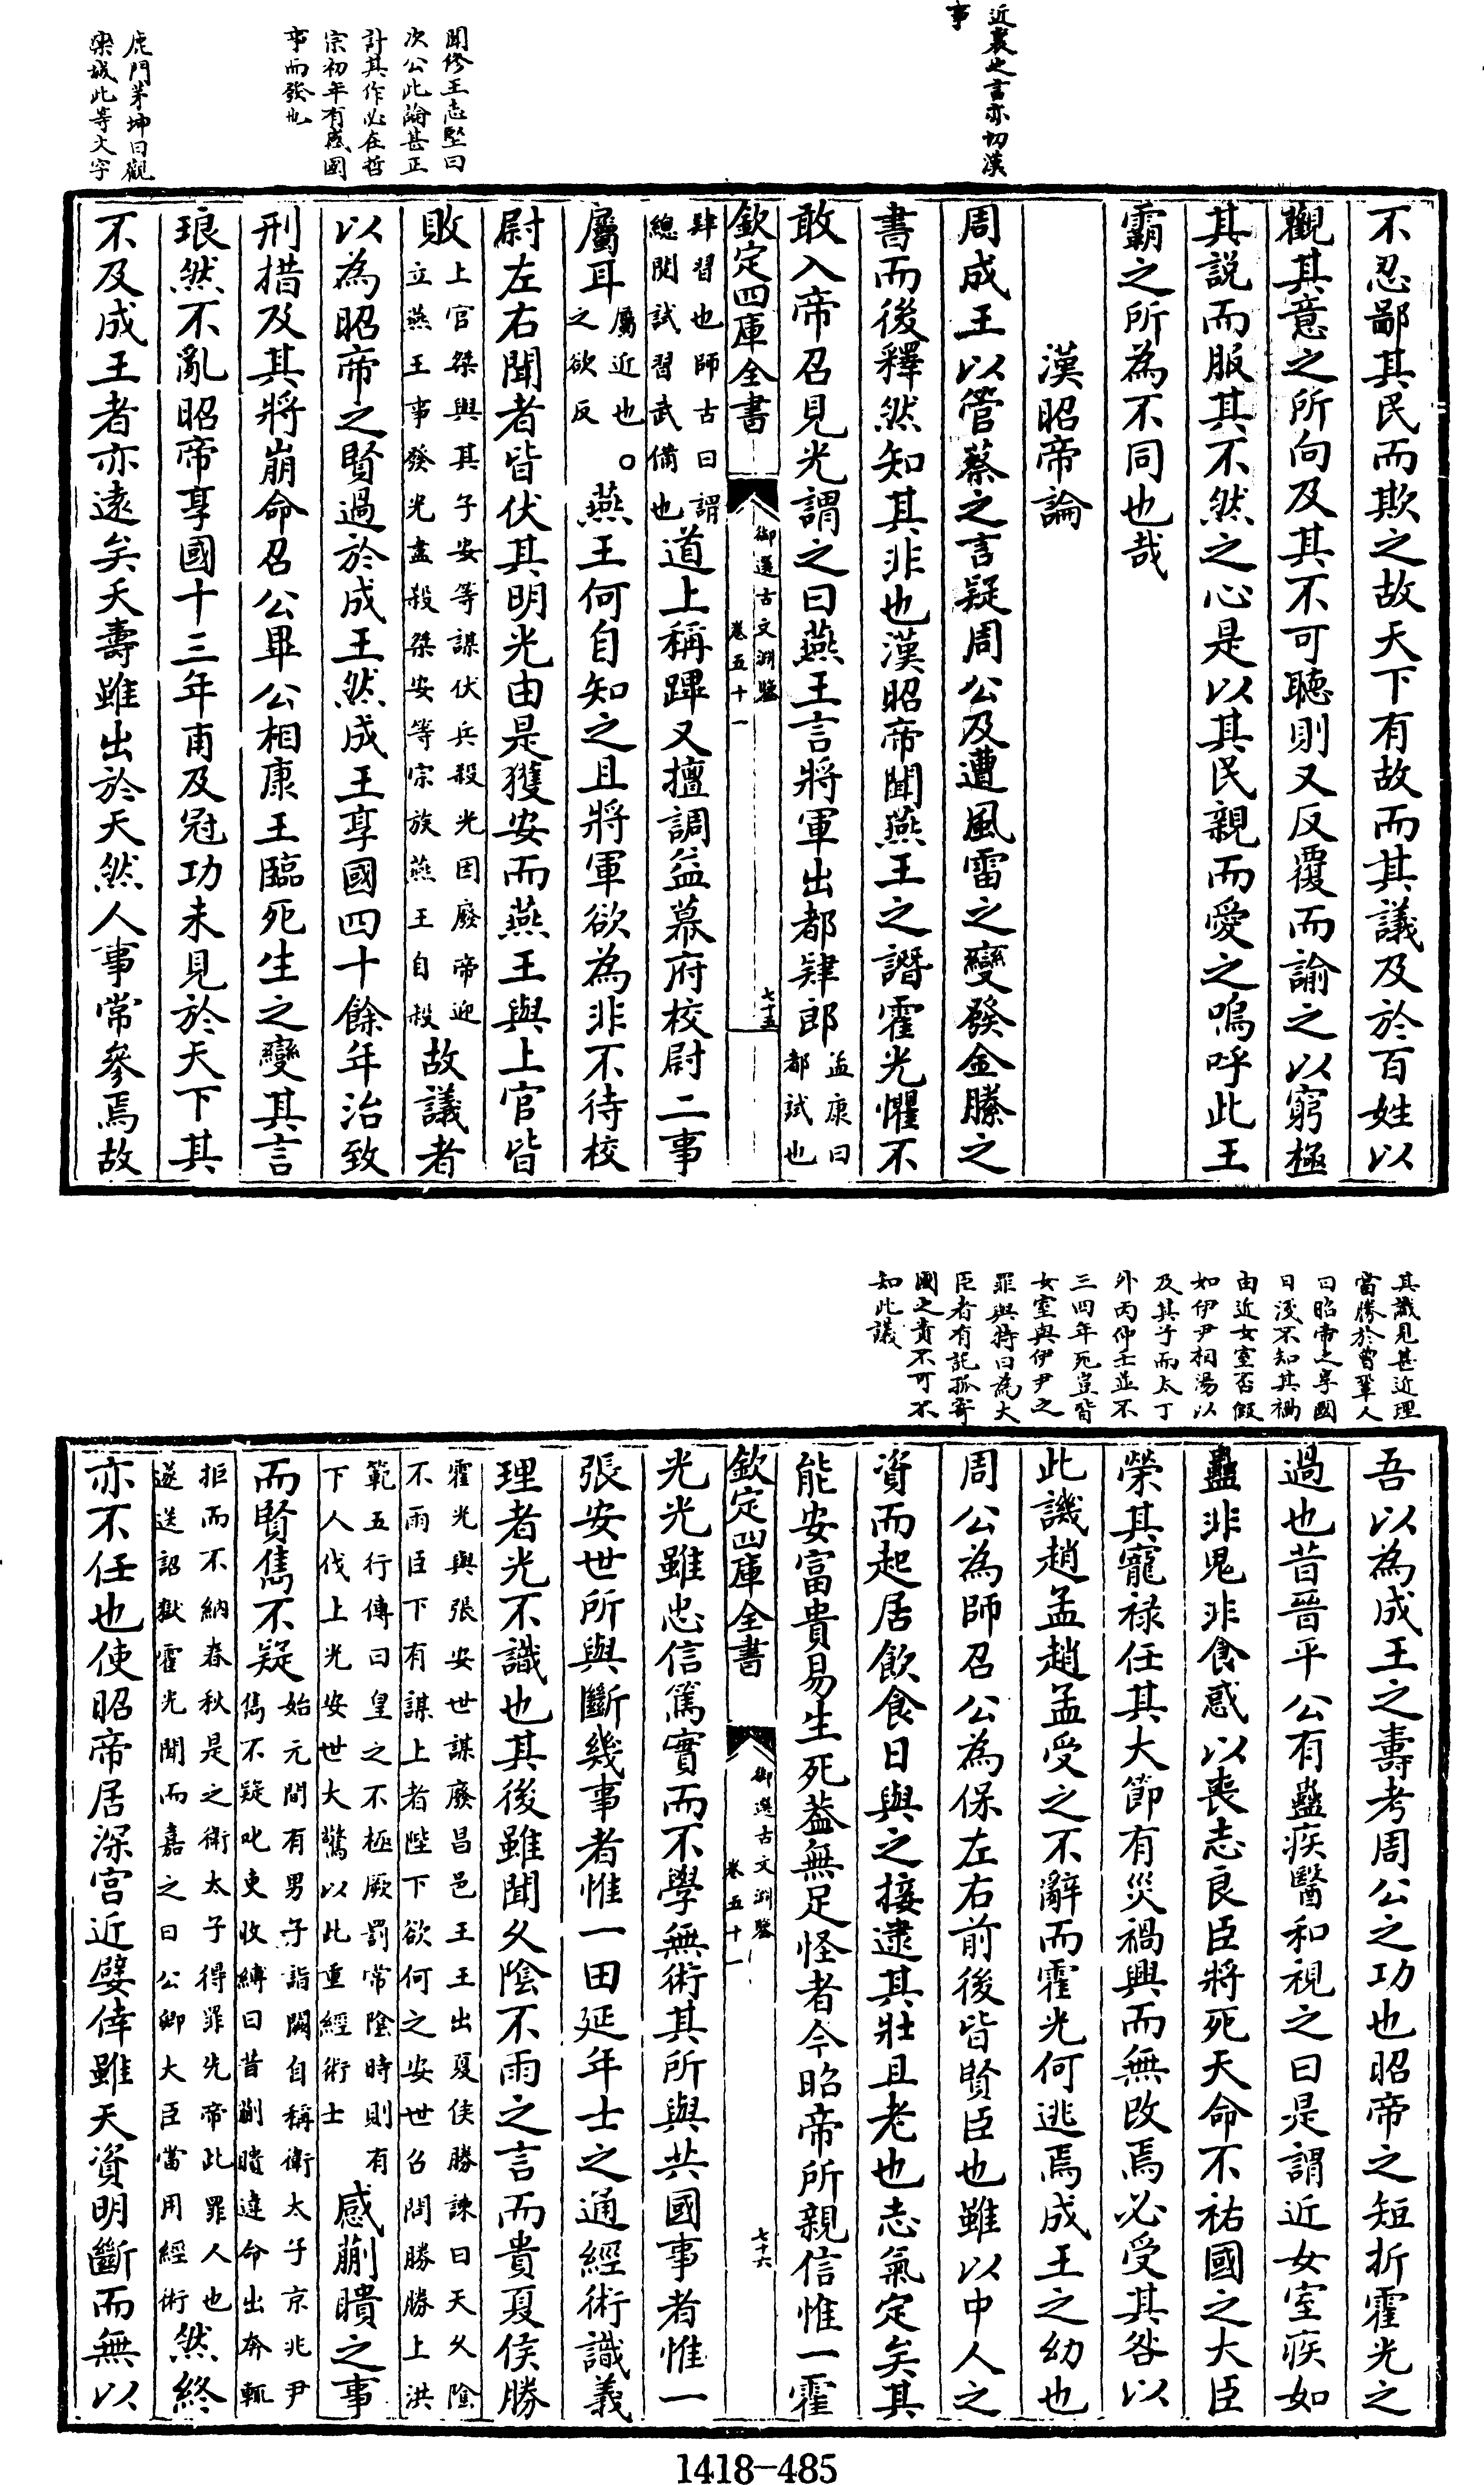 近裏之言亦切漢
事
聞修王志堅曰
次公此論甚正
計其作必在哲
宗初年有感國
事而發也
鹿門茅坤曰觀
欒城此等文字
不忍鄙其民而欺之故天下有故而其議及於百姓以
觀其意之所向及其不可聽則又反覆而諭之以窮極
其説而服其不然之心是以其民親而愛之嗚呼此王
霸之所為不同也哉
漢昭帝論
周成王以管蔡之言疑周公及遭風雷之變發金縢之
書而後釋然知其非也漢昭帝聞燕王之譖霍光懼不
敢入帝召見光謂之曰燕王言將軍出都肄郎孟康曰都試也
欽定四庫全書
御選古文淵鑒
卷五十一
七十五
肄習也師古曰謂總閲試習武備也道上稱蹕又擅調益幕府校尉二事
屬耳屬近也。之欲反燕王何自知之且將軍欲為非不待校
尉左右聞者皆伏其明光由是獲安而燕王與上官皆
敗上官桀與其子安等謀伏兵殺光因廢帝迎立燕王事發光盡殺桀安等宗族燕王自殺故議者
以為昭帝之賢過於成王然成王享國四十餘年治致
刑措及其將崩命召公畢公相康王臨死生之變其言
琅然不亂昭帝享國十三年甫及冠功未見於天下其
不及成王者亦遠矣夭壽雖出於天然人事常參焉故
其識見甚近理
當勝於曾鞏人
曰昭帝之享國
日淺不知其禍
由近女室否假
如伊尹相湯以
及其子而太丁
外丙仲壬並不
三四年死豈皆
女室與伊尹之
罪與特曰為大
臣者有託孤寄
國之責不可不
知此議
吾以為成王之壽考周公之功也昭帝之短折霍光之
過也昔晉平公有蠱疾醫和視之曰是謂近女室疾如
蠱非鬼非食惑以喪志良臣將死天命不祐國之大臣
榮其寵禄任其大節有災禍興而無改焉必受其咎以
此譏趙孟趙孟受之不辭而霍光何逃焉成王之幼也
周公為師召公為保左右前後皆賢臣也雖以中人之
資而起居飲食日與之接逮其壯且老也志氣定矣其
能安富貴易生死葢無足怪者今昭帝所親信惟一霍
欽定四庫全書
御選古文淵鑒
卷五十一
七十六
光光雖忠信篤實而不學無術其所與共國事者惟一
張安世所與斷幾事者惟一田延年士之通經術識義
理者光不識也其後雖聞久陰不雨之言而貴夏侯勝
霍光與張安世謀廢昌邑王王出夏侯勝諫曰天久陰不雨臣下有謀上者陛下欲何之安世召問勝勝上洪
範五行傳曰皇之不極厥罰常陰時則有下人伐上光安世大驚以此重經術士感蒯聵之事
而賢雋不疑始元間有男子詣闕自稱衛太子京兆尹雋不疑叱吏收縛曰昔蒯聵違命出奔輒
拒而不納春秋是之衛太子得罪先帝此罪人也遂送詔獄霍光聞而嘉之曰公卿大臣當用經術然終
亦不任也使昭帝居深宫近嬖倖雖天資明斷而無以
1418-485